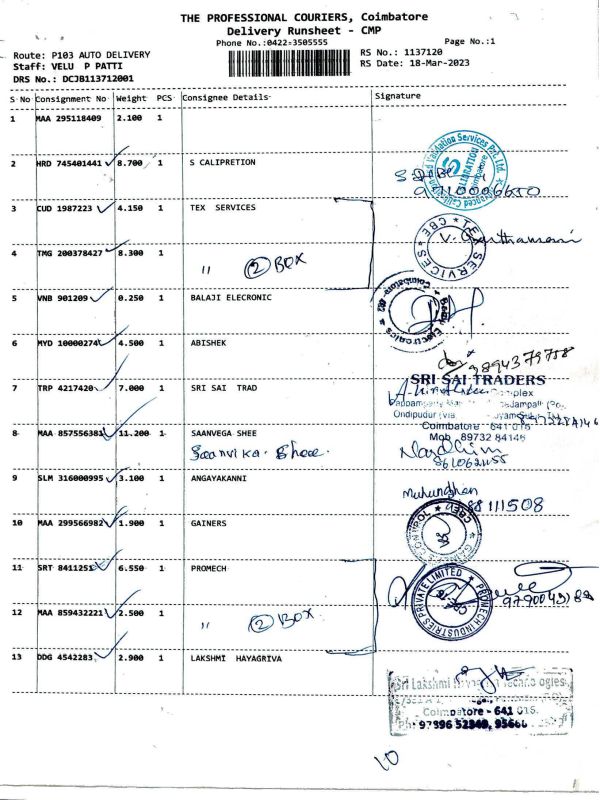 THE PROFESSIONAL COURIERS, Coimbatore
Delivery Runsheet - CMP
Phone No.:0422-3505555 Page No.:1
Route: P103 AUTO DELIVERY RS No.: 1137120
Staff: VELU P PATTI RS Date: 18-Mar-2023
DRS No.: DCJB113712001
S No Consignment No Weight PCS Consignee Details Signature
1 MAA 295118409 2.100 1
2 HRD 745401441 8.700 1 S CALIPRETION
3 CUD 1987223 4.150 1 TEX SERVICES
4 TMG 200378427 8.300 1 " 2 BOX
5 VNB 901209 0.250 1 BALAJI ELECRONIC
6 MYD 10000274 4.500 1 ABISHEK
9894379758
7 TRP 4217420 7.000 1 SRI SAI TRAD
SRI SAI TRADERS
Coimbatore - 641 016
Mob 89732 84146
8 MAA 857556382 11.200 1 SAANVEGA SHEE
Saanvika Shee
9 SLM 316000995 3.100 1 ANGAYAKANNI
10 MAA 299566982 1.900 1 GAINERS
11 SRT 8411251 6.550 1 PROMECH
PROMECH INDUSTRIES PRIVATE LIMITED
12 MAA 859432221 2.500 1 " 2 BOX
13 DDG 4542283 2.900 1 LAKSHMI HAYAGRIVA
Sri Lakshmi
Coimbatore - 641 016.
10